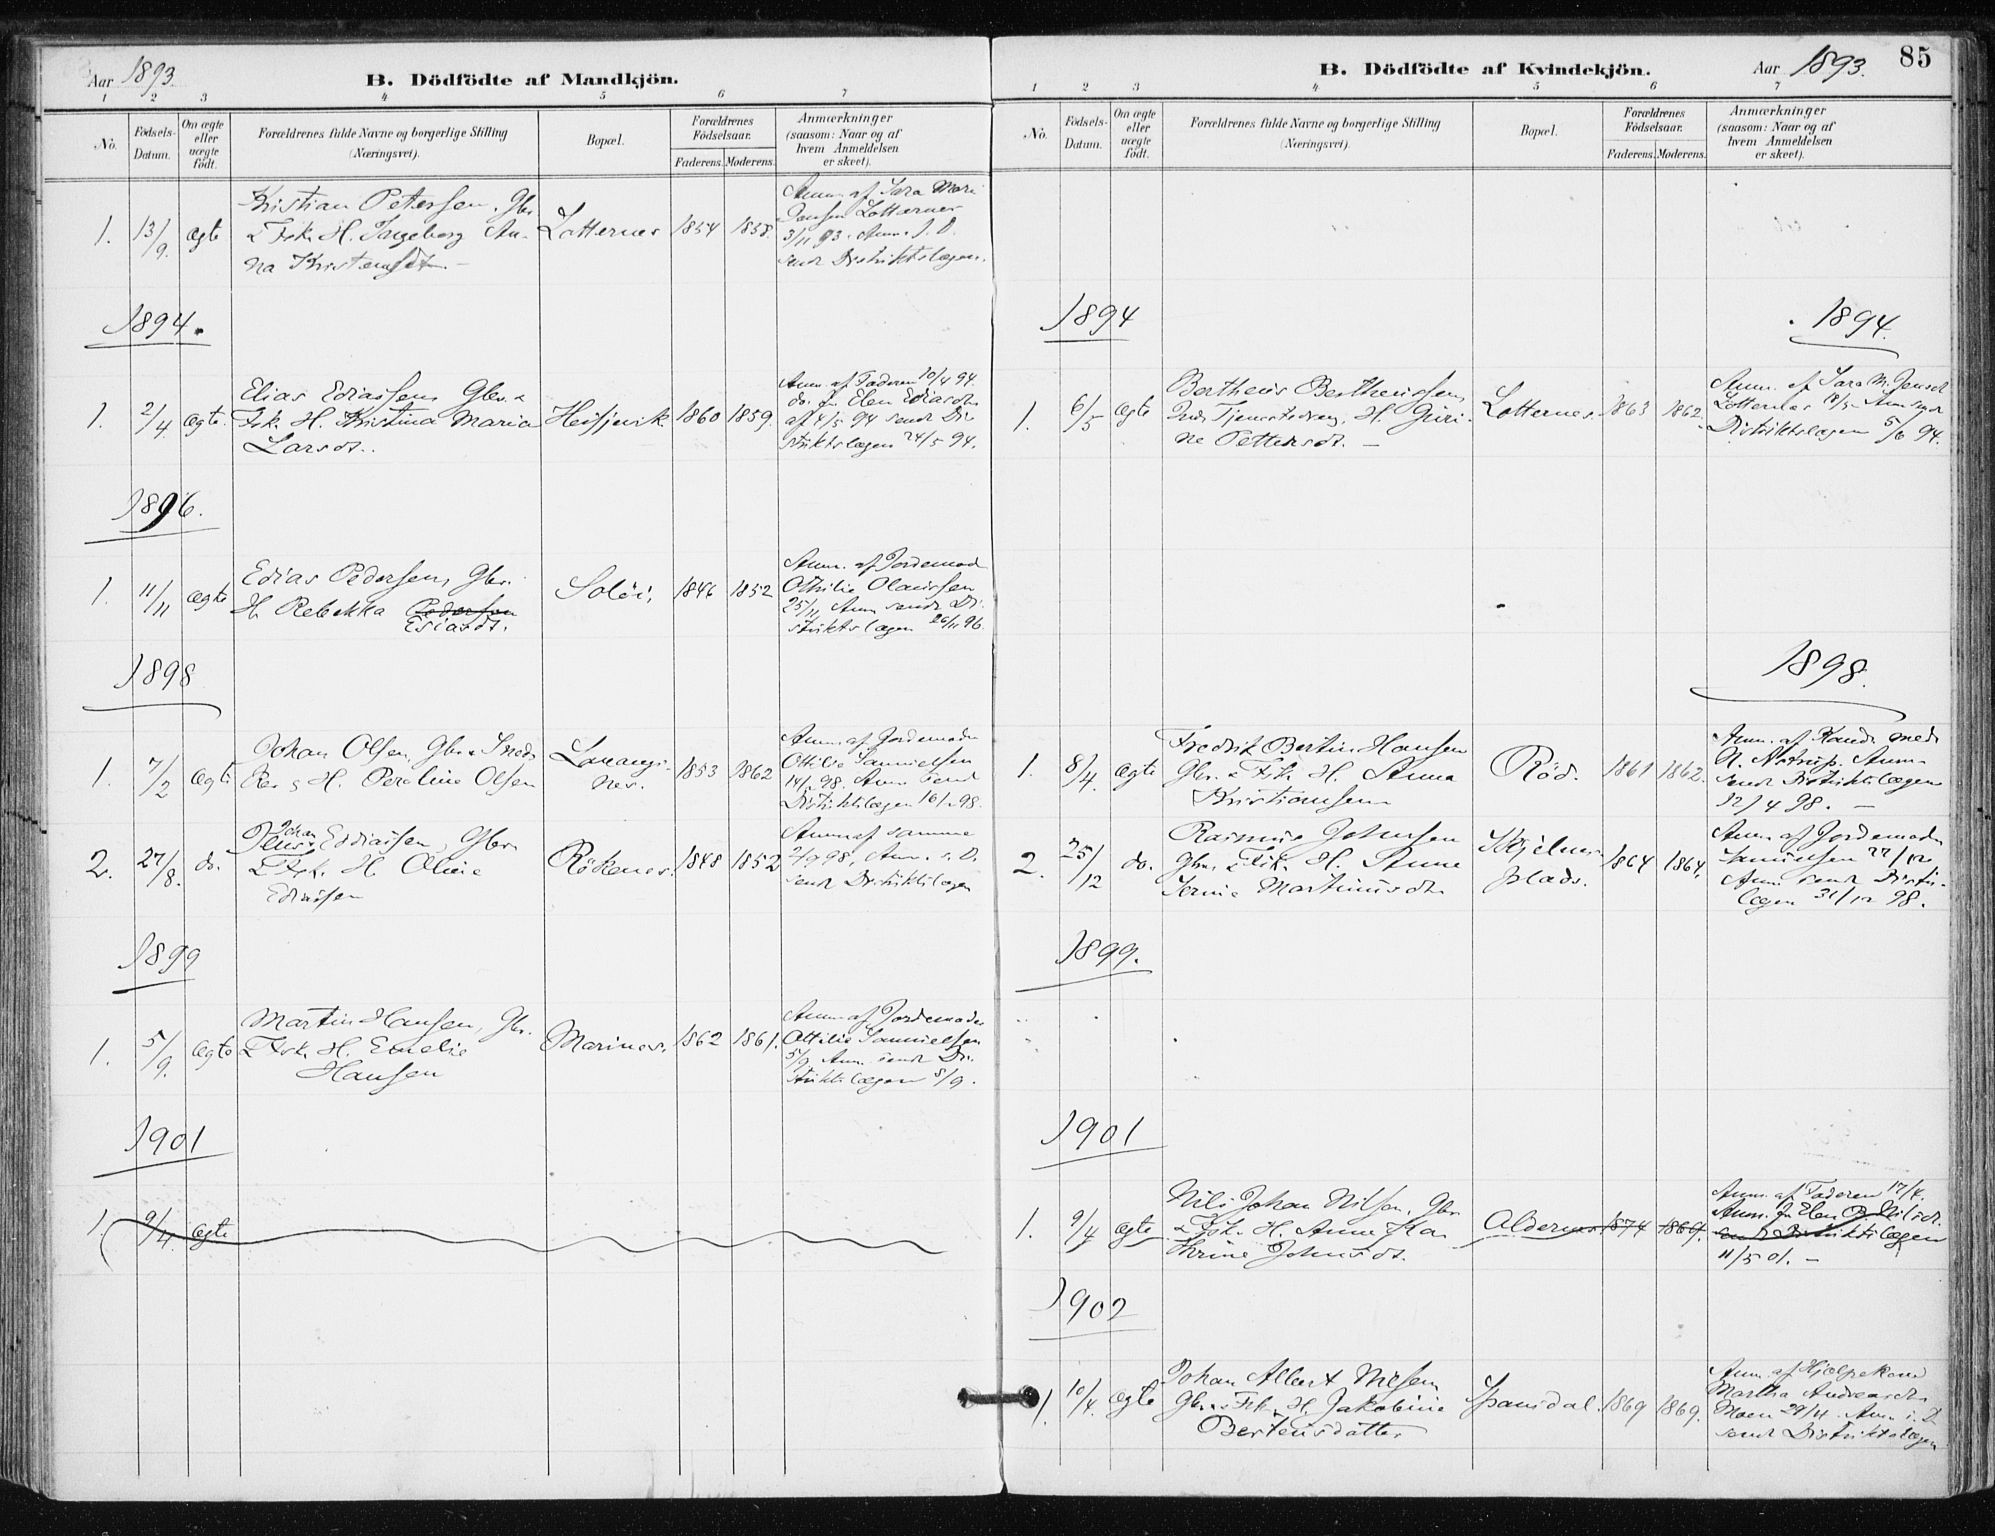 Aar 1893.
B. Dödfödte af Mandkjön.
1 2 3 4 5 6 7
No.
Födsels-Datum.
Om ægte eller uægte födt.
Forældrenes fulde Navne og borgerlige Stilling (Næringsvei).
Bopæl.
Forældrenes Födselsaar.
Faderens. Moderens.
Anmærkninger (saasom: Naar og af hvem Anmeldelsen er skeet).
1. 13/9. ægte
Kristian Petersen, Gbr.
& Fsk. H. Ingeborg An-
na Kristensdtr. –
Lotternes 1854 1858.
Anm. af Sara Mari
Jensen Lotternes
3/11 93. Anm. s. D.
sendt Distriktslægen.
1894.
1. 2/4 ægte.
Elias Ediassen Gbr. &
Fsk. H. Kristina Maria
Larsdt.
1860 1859.
Anm. af Faderen 10/4 94.
do. fra Elen Ediasdtr.
af 4/5 94 sendt Di-
striktslægen 24/5 94.
1896.
1. 11/11 ægte
Edias Pedersen, Gbr.
H. Rebekka Pedersen
Esiasdt.
Solöi, 1846 1852
Anm. af Jordemod
Othilie Olaussen
25/11 Anm sendt Di-
striktslægen 26/11 96.
1898
1. 7/2 ægte
Johan Olsen, Gbr. & Sned-
ker, H. Peroline Olsen
Lavangs-
nes.
1853 1862
Anm. af Jordemodr
Ottilie Samuelsen
14/2 98. Anm sendt
Distriktslægen 16/2 98.
2. 27/8. do.
Johan
Jens Ediassen, Gbr.
& Fsk. H. Olivie
Ediassen
Rökenes. 1848 1852
Anm af samme
2/9 98, Anm. s. D.
sendt Distriktslægen
1899
1. 5/9. ægte
Martin Hansen, Gbr.
& Fsk. H. Emelie
Hansen
Marines. 1862 1861.
Anm. af Jordemoder
Ottilie Samuelsen
5/9 Anm. sendt Di-
striktslægen 8/9.
1901
1. 9/4. ægte
85
B. Dödfödte af Kvindekjön.
Aar 1893.
1 2 3 4 5 6 7
No.
Födsels-Datum.
Om ægte eller uægte födt.
Forældrenes fulde Navne og borgerlige Stilling (Næringsvei).
Bopæl.
Forældrenes Födselsaar.
Faderens. Moderens.
Anmærkninger (saasom: Naar og af hvem Anmeldelsen er skeet).
1894 1894.
1. 6/5 ægte
Bertheus Bertheussen,
Inds. H. Guri-
ne Pettersdt. –
Lotternes. 1863 1862.
Anm. af Sara M. Jensdt
Lotternes 18/5. Anm sendt
Distriktslægen 5/6 94.
1898.
1. 8/4. ægte
Fredrik Bertin Hansen
Gbr. & Fsk. H. Anna
Kristiansen
Röd. 1861 1862.
Anm. af Kand. med.
Anm.
sendt Distriktslægen
12/4 98. –
2. 25/12 do.
Rasmus Johnsen
Gbr. & Fsk. H. Anne
Martinusdtr
plads. 1864 1864.
Anm. af Jordemoder
Samuelsen 27/12
Anm sendt Distr.-
lægen 31/12 98.
1899.
1901
1. 9/4 ægte
Nils Johan Nilsen, Gbr.
& Fsk. H. Anne Ka-
thrine Johnsdt.
Aldernes 1874 1869.
Anm. af Faderen 17/4.
Anm. fra Elen B. Nilsdt.
sendt Distriktslægen
11/5 01. –
1902
1. 10/4. ægte
Johan Albert Nilsen,
Gbr. & Fsk. H. Jakobine
Berteusdatter
Spansdal. 1869 1869.
Anm. af Hjælpekone
Martha Andreasdtr.
Moen 29/4. Anm. s. D.
sendt Distriktslægen